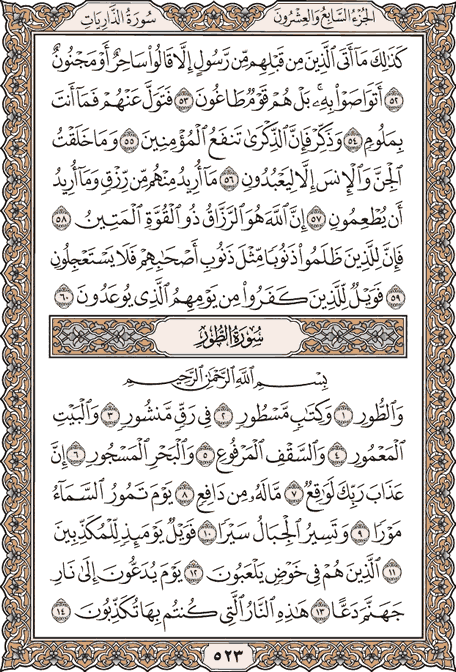 سُورَةُ الذَّارِيَاتِ الجُزْءُ السَّابِعُ وَالعِشْرُونَ
كَذَٰلِكَ مَآ أَتَى ٱلَّذِينَ مِن قَبْلِهِم مِّن رَّسُولٍ إِلَّا قَالُوا۟ سَاحِرٌ أَوْ مَجْنُونٌ
٥٢ أَتَوَاصَوْا۟ بِهِۦ ۚ بَلْ هُمْ قَوْمٌ طَاغُونَ ٥٣ فَتَوَلَّ عَنْهُمْ فَمَآ أَنتَ
بِمَلُومٍ ٥٤ وَذَكِّرْ فَإِنَّ ٱلذِّكْرَىٰ تَنفَعُ ٱلْمُؤْمِنِينَ ٥٥ وَمَا خَلَقْتُ
ٱلْجِنَّ وَٱلْإِنسَ إِلَّا لِيَعْبُدُونِ ٥٦ مَآ أُرِيدُ مِنْهُم مِّن رِّزْقٍ وَمَآ أُرِيدُ
أَن يُطْعِمُونِ ٥٧ إِنَّ ٱللَّهَ هُوَ ٱلرَّزَّاقُ ذُو ٱلْقُوَّةِ ٱلْمَتِينُ ٥٨
فَإِنَّ لِلَّذِينَ ظَلَمُوا۟ ذَنُوبًا مِّثْلَ ذَنُوبِ أَصْحَٰبِهِمْ فَلَا يَسْتَعْجِلُونِ
٥٩ فَوَيْلٌ لِّلَّذِينَ كَفَرُوا۟ مِن يَوْمِهِمُ ٱلَّذِى يُوعَدُونَ ٦٠
سُورَةُ الطُّورِ
بِسْمِ ٱللَّهِ ٱلرَّحْمَٰنِ ٱلرَّحِيمِ
وَٱلطُّورِ ١ وَكِتَٰبٍ مَّسْطُورٍ ٢ فِى رَقٍّ مَّنشُورٍ ٣ وَٱلْبَيْتِ
ٱلْمَعْمُورِ ٤ وَٱلسَّقْفِ ٱلْمَرْفُوعِ ٥ وَٱلْبَحْرِ ٱلْمَسْجُورِ ٦ إِنَّ
عَذَابَ رَبِّكَ لَوَٰقِعٌ ٧ مَّا لَهُۥ مِن دَافِعٍ ٨ يَوْمَ تَمُورُ ٱلسَّمَآءُ
مَوْرًا ٩ وَتَسِيرُ ٱلْجِبَالُ سَيْرًا ١٠ فَوَيْلٌ يَوْمَئِذٍ لِّلْمُكَذِّبِينَ
١١ ٱلَّذِينَ هُمْ فِى خَوْضٍ يَلْعَبُونَ ١٢ يَوْمَ يُدَعُّونَ إِلَىٰ نَارِ
جَهَنَّمَ دَعًّا ١٣ هَٰذِهِ ٱلنَّارُ ٱلَّتِى كُنتُم بِهَا تُكَذِّبُونَ ١٤
٥٢٣